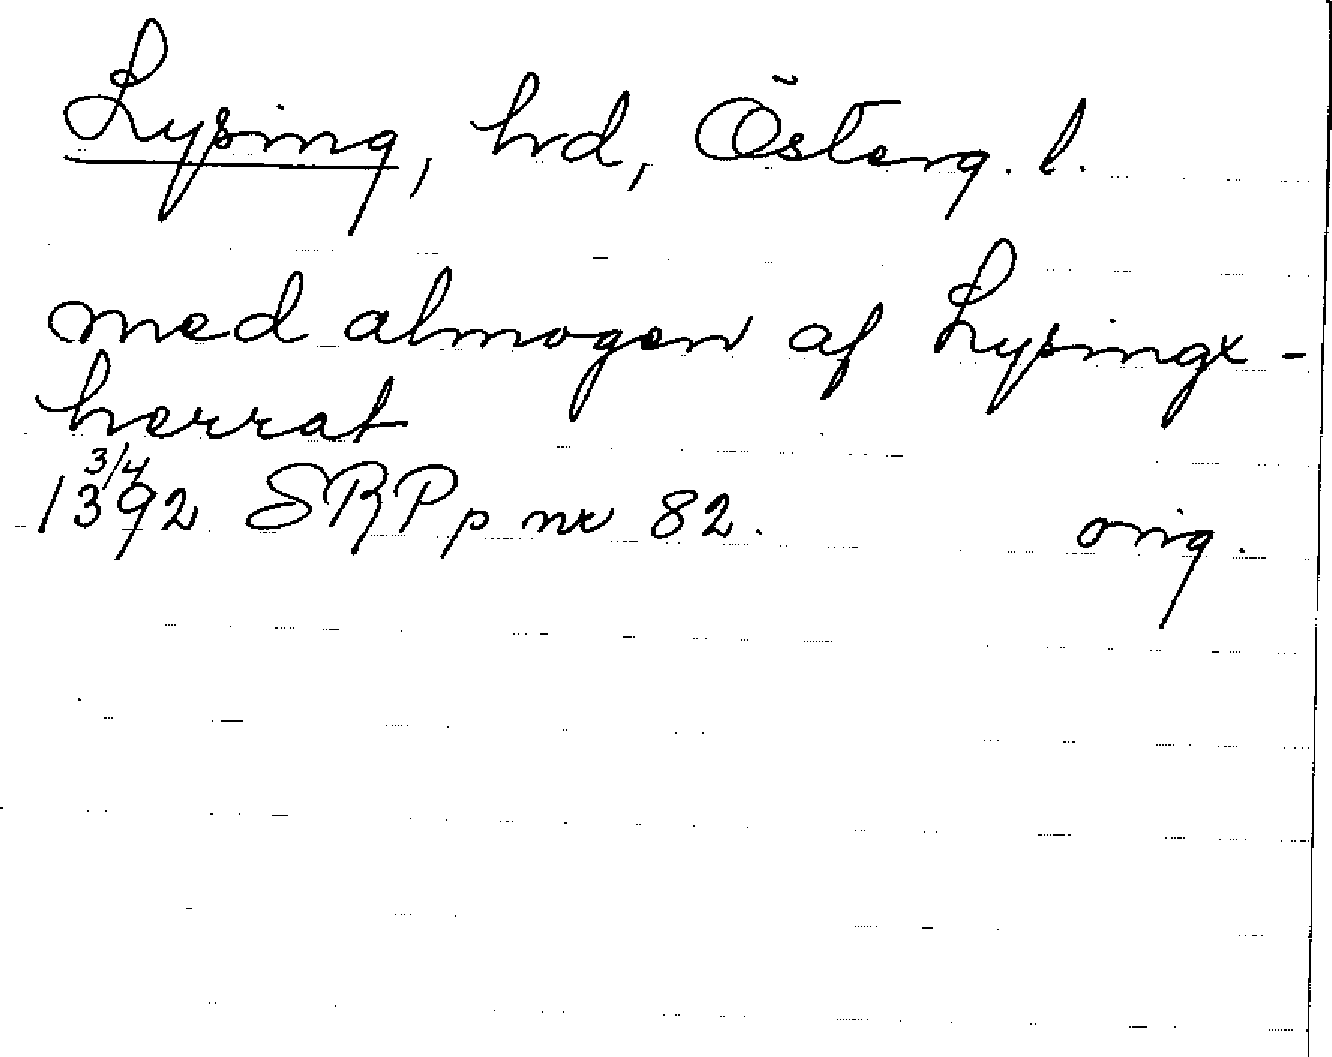 Lysing, hrd, Österg. l.
med almogen af Lysingx-
herrat
3/4
1392 SRPp nr 82. orig.